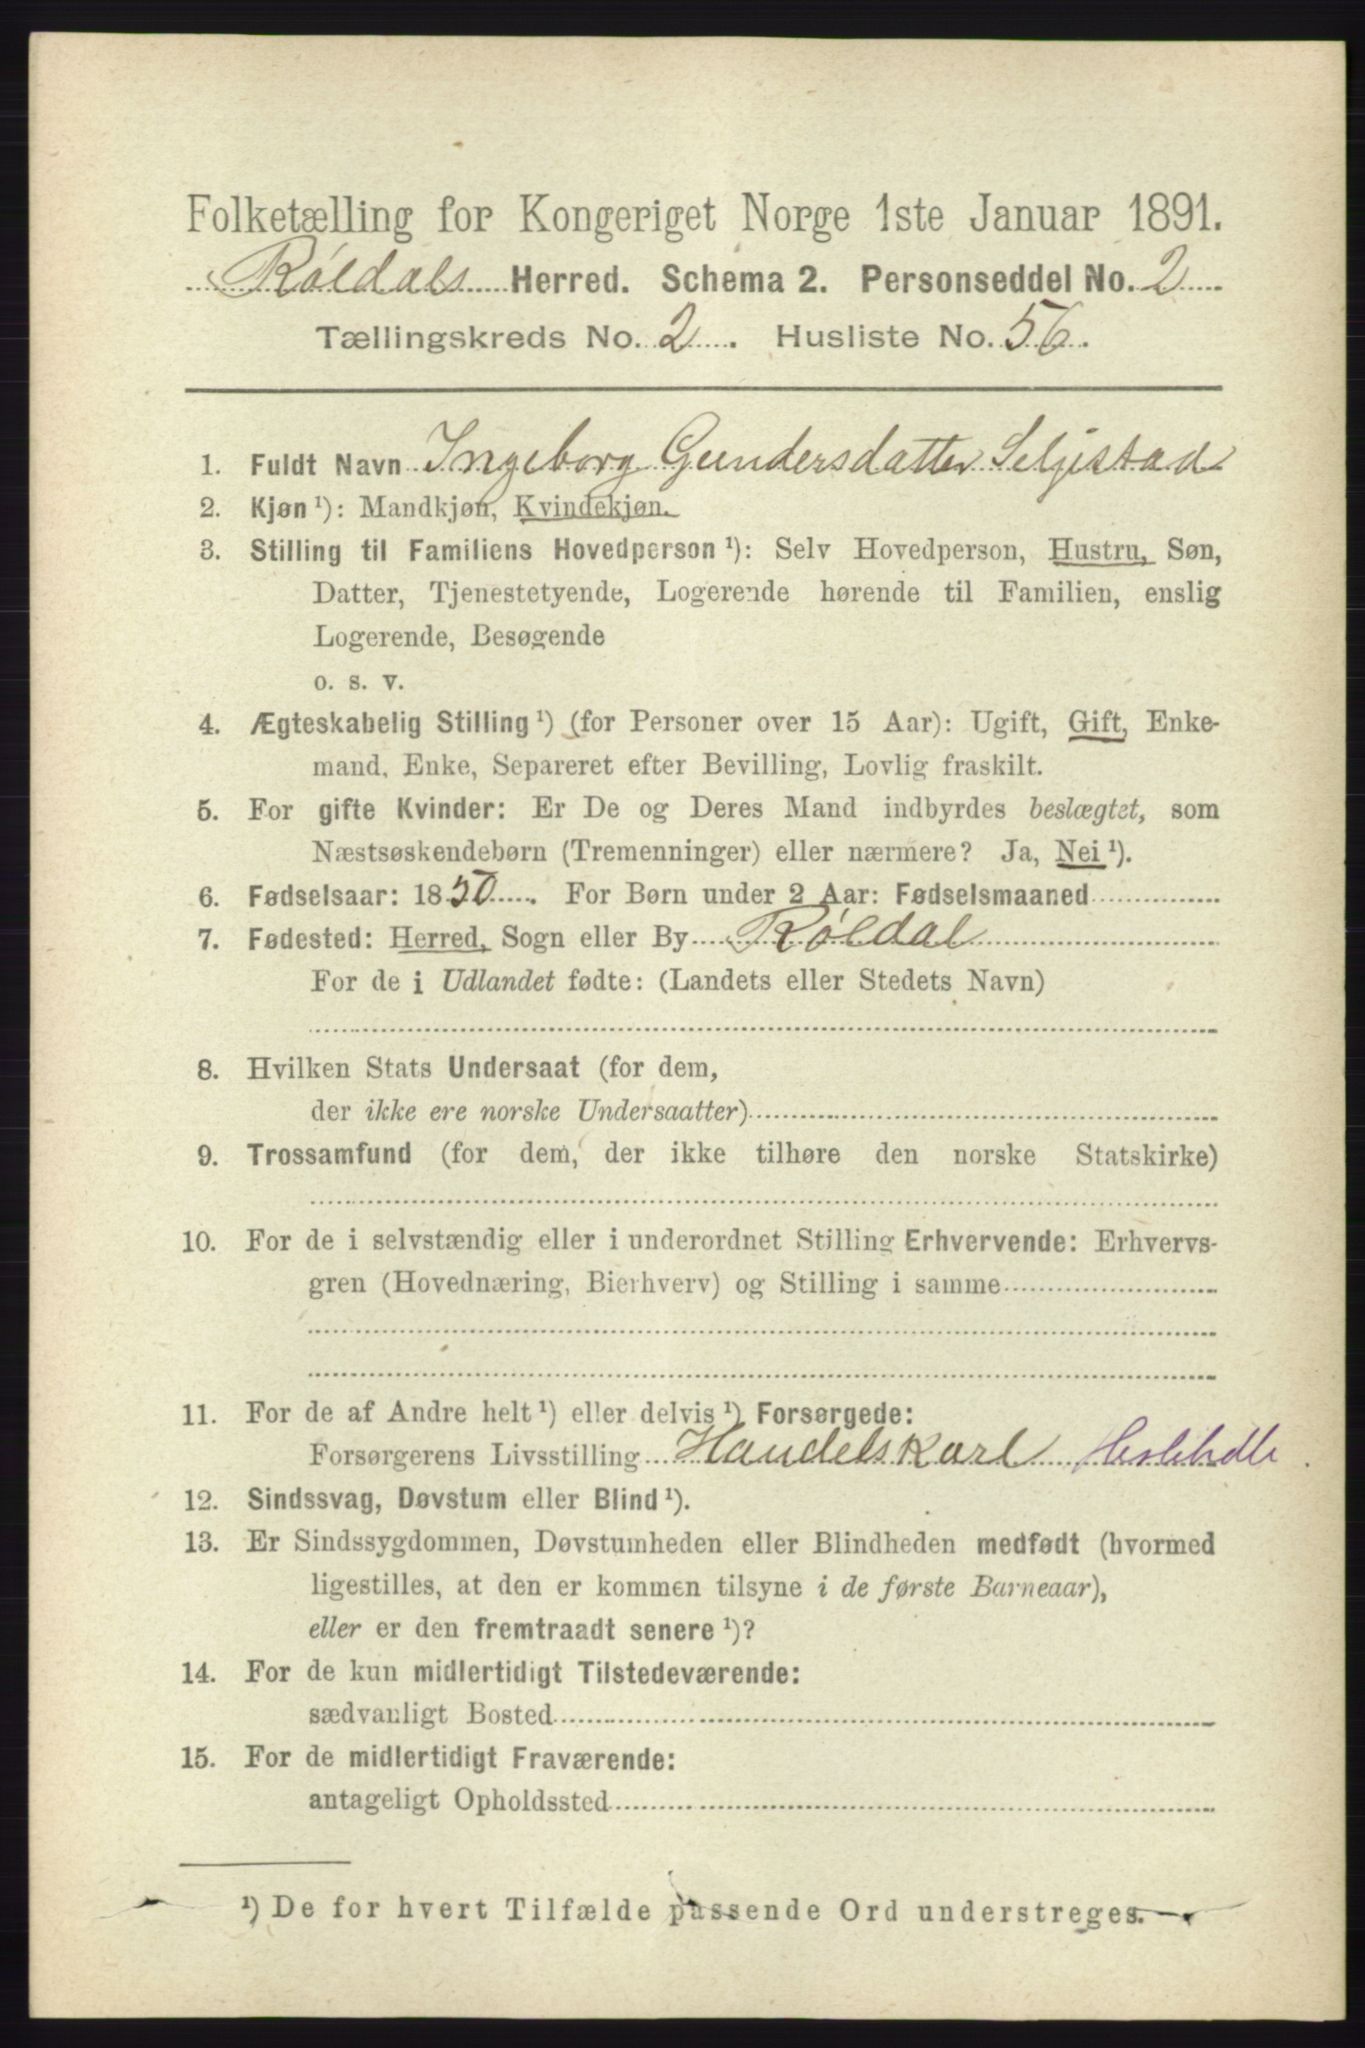 Folketælling for Kongeriget Norge 1ste Januar 1891.
Røldals Herred. Schema 2. Personseddel No. 2
Tællingskreds No. 2. Husliste No. 56.
1. Fuldt Navn Ingeborg Gundersdatter Seljestad
2. Kjøn ¹): Mandkjøn, Kvindekjøn.
3. Stilling til Familiens Hovedperson ¹): Selv Hovedperson, Hustru, Søn,
Datter, Tjenestetyende, Logerende hørende til Familien, enslig
Logerende, Besøgende
o. s. v.
4. Ægteskabelig Stilling ¹) (for Personer over 15 Aar): Ugift, Gift, Enke-
mand, Enke, Separeret efter Bevilling, Lovlig fraskilt.
5. For gifte Kvinder: Er De og Deres Mand indbyrdes beslægtet, som
Næstsøskendebørn (Tremenninger) eller nærmere? Ja, Nei ¹).
6. Fødselsaar: 1850. For Børn under 2 Aar: Fødselsmaaned
7. Fødested: Herred, Sogn eller By Røldal
For de i Udlandet fødte: (Landets eller Stedets Navn)
8. Hvilken Stats Undersaat (for dem,
der ikke ere norske Undersaatter)
9. Trossamfund (for dem, der ikke tilhøre den norske Statskirke)
10. For de i selvstændig eller i underordnet Stilling Erhvervende: Erhvervs-
gren (Hovednæring, Bierhverv) og Stilling i samme
11. For de af Andre helt ¹) eller delvis ¹) Forsørgede:
Forsørgerens Livsstilling Handelskarl
12. Sindssvag, Døvstum eller Blind ¹).
13. Er Sindssygdommen, Døvstumheden eller Blindheden medfødt (hvormed
ligestilles, at den er kommen tilsyne i de første Barneaar),
eller er den fremtraadt senere ¹)?
14. For de kun midlertidigt Tilstedeværende:
sædvanligt Bosted
15. For de midlertidigt Fraværende:
antageligt Opholdssted
¹) De for hvert Tilfælde passende Ord understreges.